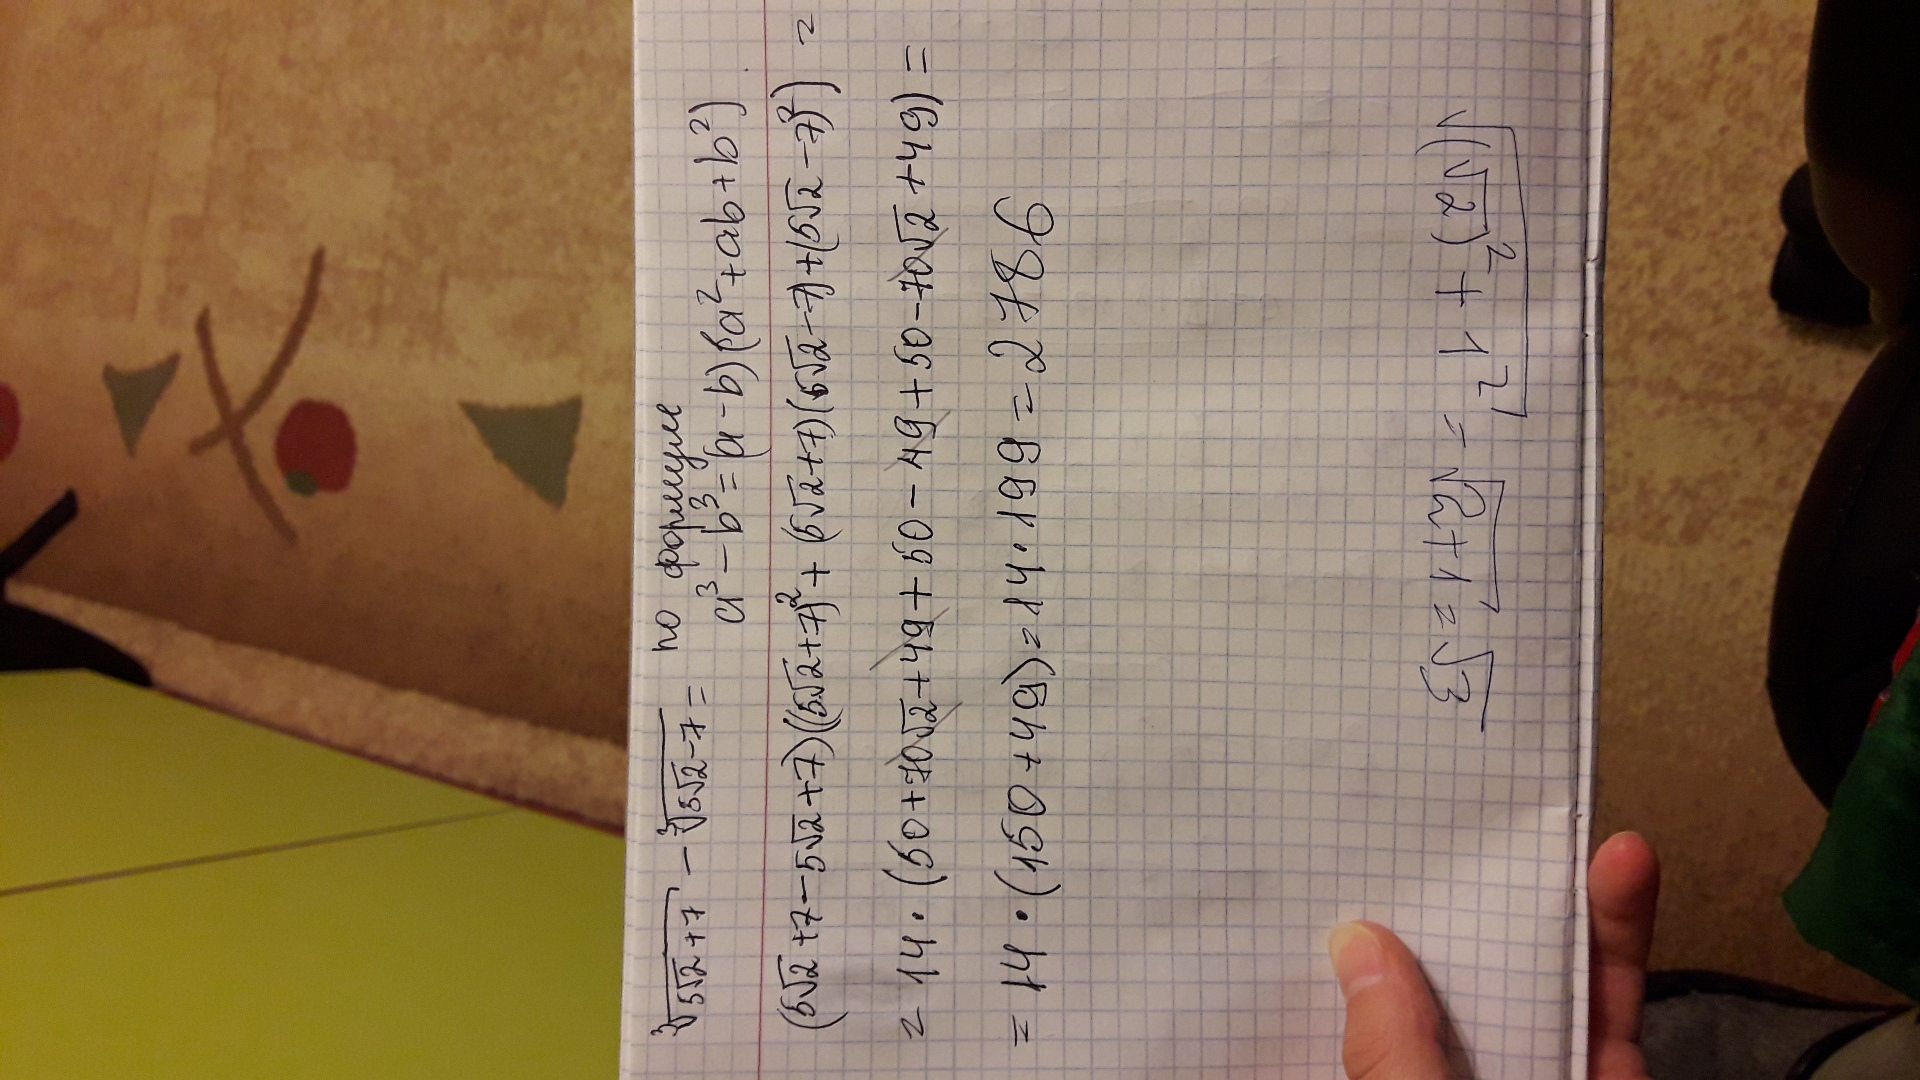 ∛(5√2+7) − ∛(5√2−7) = по формуле
a³ − b³ = (a − b)(a² + ab + b²)
(5√2+7−5√2+7)((5√2+7)² + (5√2+7)(5√2−7)+(5√2−7)²) =
= 14 · (50+70√2+49+50−49+50−70√2+49) =
= 14 · (150+49) = 14 · 199 = 2786
√((√2)² + 1²) = √(2+1) = √3